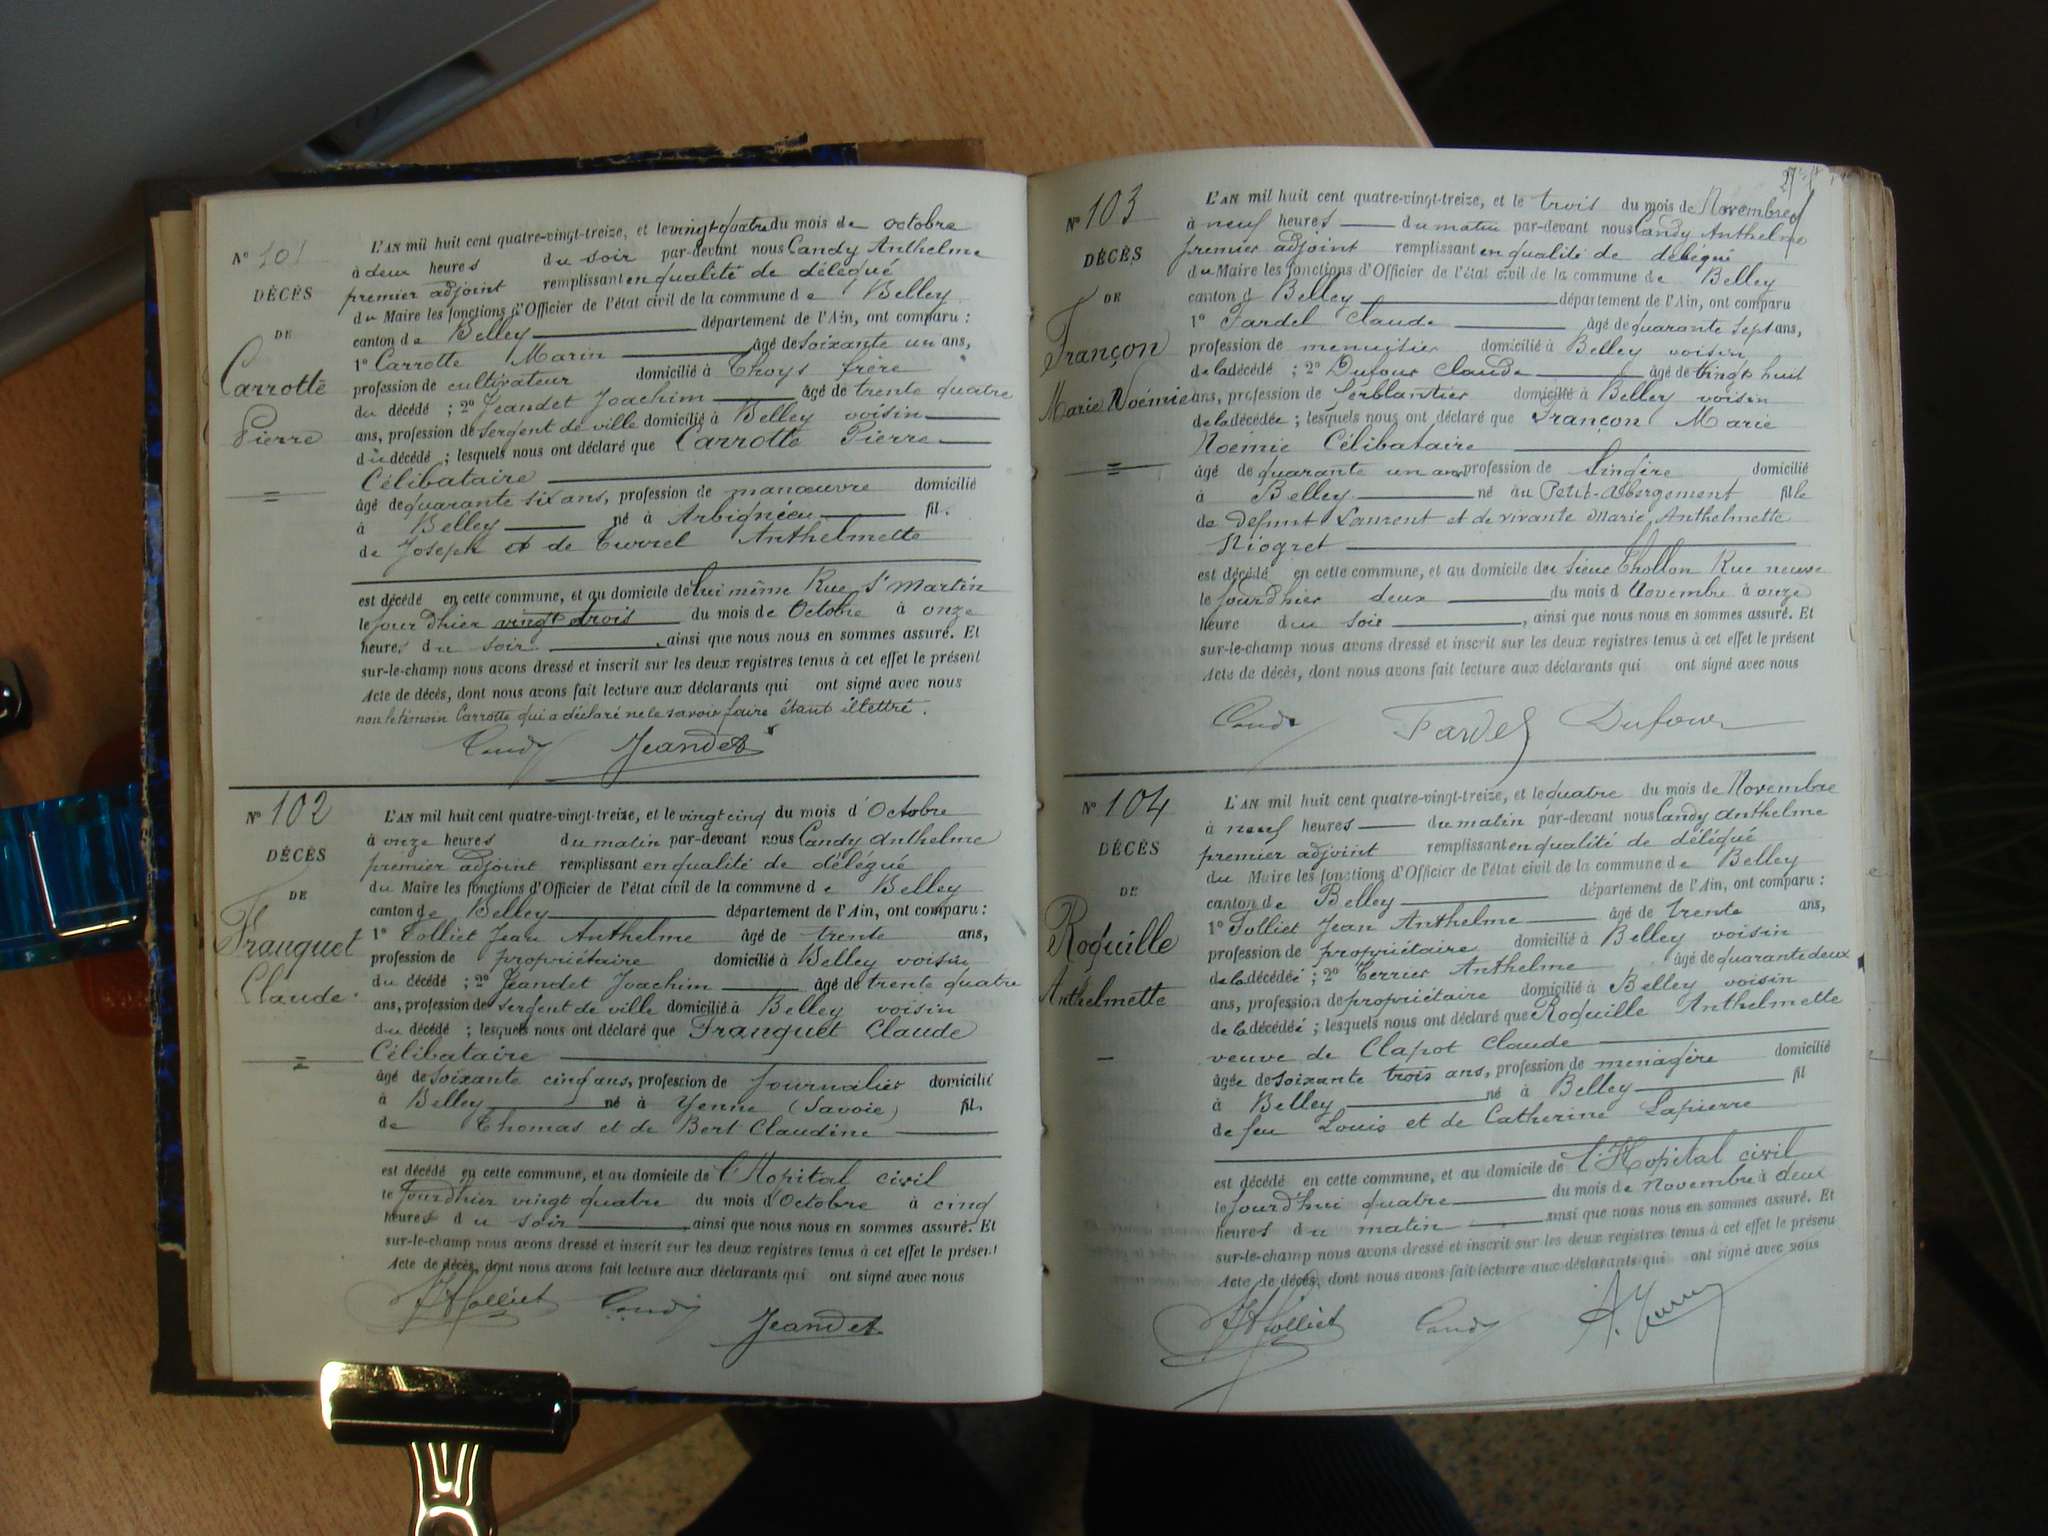 N° 101
DÉCÈS
DE
Carrotte
Pierre
L'AN mil huit cent quatre-vingt-treize, et le vingt-quatre du mois de octobre
à deux heures du soir par-devant nous Candy Anthelme
premier adjoint remplissant en qualité de délégué
du Maire les fonctions d'Officier de l'état civil de la commune de Belley
canton de Belley département de l'Ain, ont comparu :
1° Carrotte Marin âgé de soixante un ans,
profession de cultivateur domicilié à Thoys frère
du décédé ; 2° Jeandet Joachim âgé de trente quatre
ans, profession de sergent de ville domicilié à Belley voisin
du décédé ; lesquels nous ont déclaré que Carrotte Pierre
Célibataire
âgé de quarante six ans, profession de manœuvre domicilié
à Belley né à Arbignieu fil.
de Joseph et de Anthelmette
est décédé en cette commune, et au domicile de lui même Rue St Martin
le jour dhier vingt trois du mois de Octobre à onze
heures du soir, ainsi que nous nous en sommes assuré. Et
sur-le-champ nous avons dressé et inscrit sur les deux registres tenus à cet effet le présent
Acte de décès, dont nous avons fait lecture aux déclarants qui ont signé avec nous
non le témoin Carrotte qui a déclaré ne le savoir faire étant illettré.
Candy Jeandet
N° 102
DÉCÈS
DE
Franquet
Claude
L'AN mil huit cent quatre-vingt-treize, et le vingt cinq du mois d'Octobre
à onze heures du matin par-devant nous Candy Anthelme
premier adjoint remplissant en qualité de délégué
du Maire les fonctions d'Officier de l'état civil de la commune de Belley
canton de Belley département de l'Ain, ont comparu :
1° Tolliet Jean Anthelme âgé de trente ans,
profession de propriétaire domicilié à Belley voisin
du décédé ; 2° Jeandet Joachim âgé de trente quatre
ans, profession de sergent de ville domicilié à Belley voisin
du décédé ; lesquels nous ont déclaré que Franquet Claude
Célibataire
âgé de soixante cinq ans, profession de journalier domicilié
à Belley né à Yenne (Savoie) fil.
de Thomas et de Bert Claudine
est décédé en cette commune, et au domicile de l'Hopital civil
le jourdhier vingt quatre du mois d'Octobre à cinq
heures du soir, ainsi que nous nous en sommes assuré. Et
sur-le-champ nous avons dressé et inscrit sur les deux registres tenus à cet effet le présent
Acte de décès, dont nous avons fait lecture aux déclarants qui ont signé avec nous
JATolliet Candy
Jeandet
N° 103
DÉCÈS
DE
Françon
Marie Noémie
L'AN mil huit cent quatre-vingt-treize, et le trois du mois de Novembre
à neuf heures du matin par-devant nous Candy Anthelme
premier adjoint remplissant en qualité de délégué
du Maire les fonctions d'Officier de l'état civil de la commune de Belley
canton d Belley département de l'Ain, ont comparu
1° Fardel Claude âgé de quarante sept ans,
profession de menuisier domicilié à Belley voisin
de la décédé ; 2° Dufour Claude âgé de vingt huit
ans, profession de ferblantier domicilié à Belley voisin
de la décédée ; lesquels nous ont déclaré que Françon Marie
Noémie Célibataire
âgé de quarante un ans profession de Lingère domicilié
à Belley né au Petit-Abergement file
de defunt Laurent et de vivante Marie Anthelmette
Niogret
est décédé en cette commune, et au domicile du sieur Chollon Rue neuve
le jourdhier deux du mois d Novembre à onze
heure du soir, ainsi que nous nous en sommes assuré. Et
sur-le-champ nous avons dressé et inscrit sur les deux registres tenus à cet effet le présent
Acte de décès, dont nous avons fait lecture aux déclarants qui ont signé avec nous
Candy Fardel Dufour
N° 104
DÉCÈS
DE
Roquille
Anthelmette
L'AN mil huit cent quatre-vingt-treize, et le quatre du mois de Novembre
à neuf heures du matin par-devant nous Candy Anthelme
premier adjoint remplissant en qualité de délégué
du Maire les fonctions d'Officier de l'état civil de la commune de Belley
canton de Belley département de l'Ain, ont comparu :
1° Tolliet Jean Anthelme âgé de trente ans,
profession de propriétaire domicilié à Belley voisin
de la décédéé ; 2° Terrier Anthelme âgé de quarante deux
ans, profession de propriétaire domicilié à Belley voisin
de la décédéé ; lesquels nous ont déclaré que Roquille Anthelmette
veuve de Clapot Claude
âgée de soixante trois ans, profession de menagère domicilié
à Belley né à Belley fil
de feu Louis et de Catherine Lapierre
est décédé en cette commune, et au domicile de l'Hopital civil
le jourd'hui quatre du mois de Novembre à deux
heures du matin ainsi que nous nous en sommes assuré. Et
sur-le-champ nous avons dressé et inscrit sur les deux registres tenus à cet effet le présent
Acte de décès, dont nous avons fait lecture aux déclarants qui ont signé avec nous
JATolliet Candy